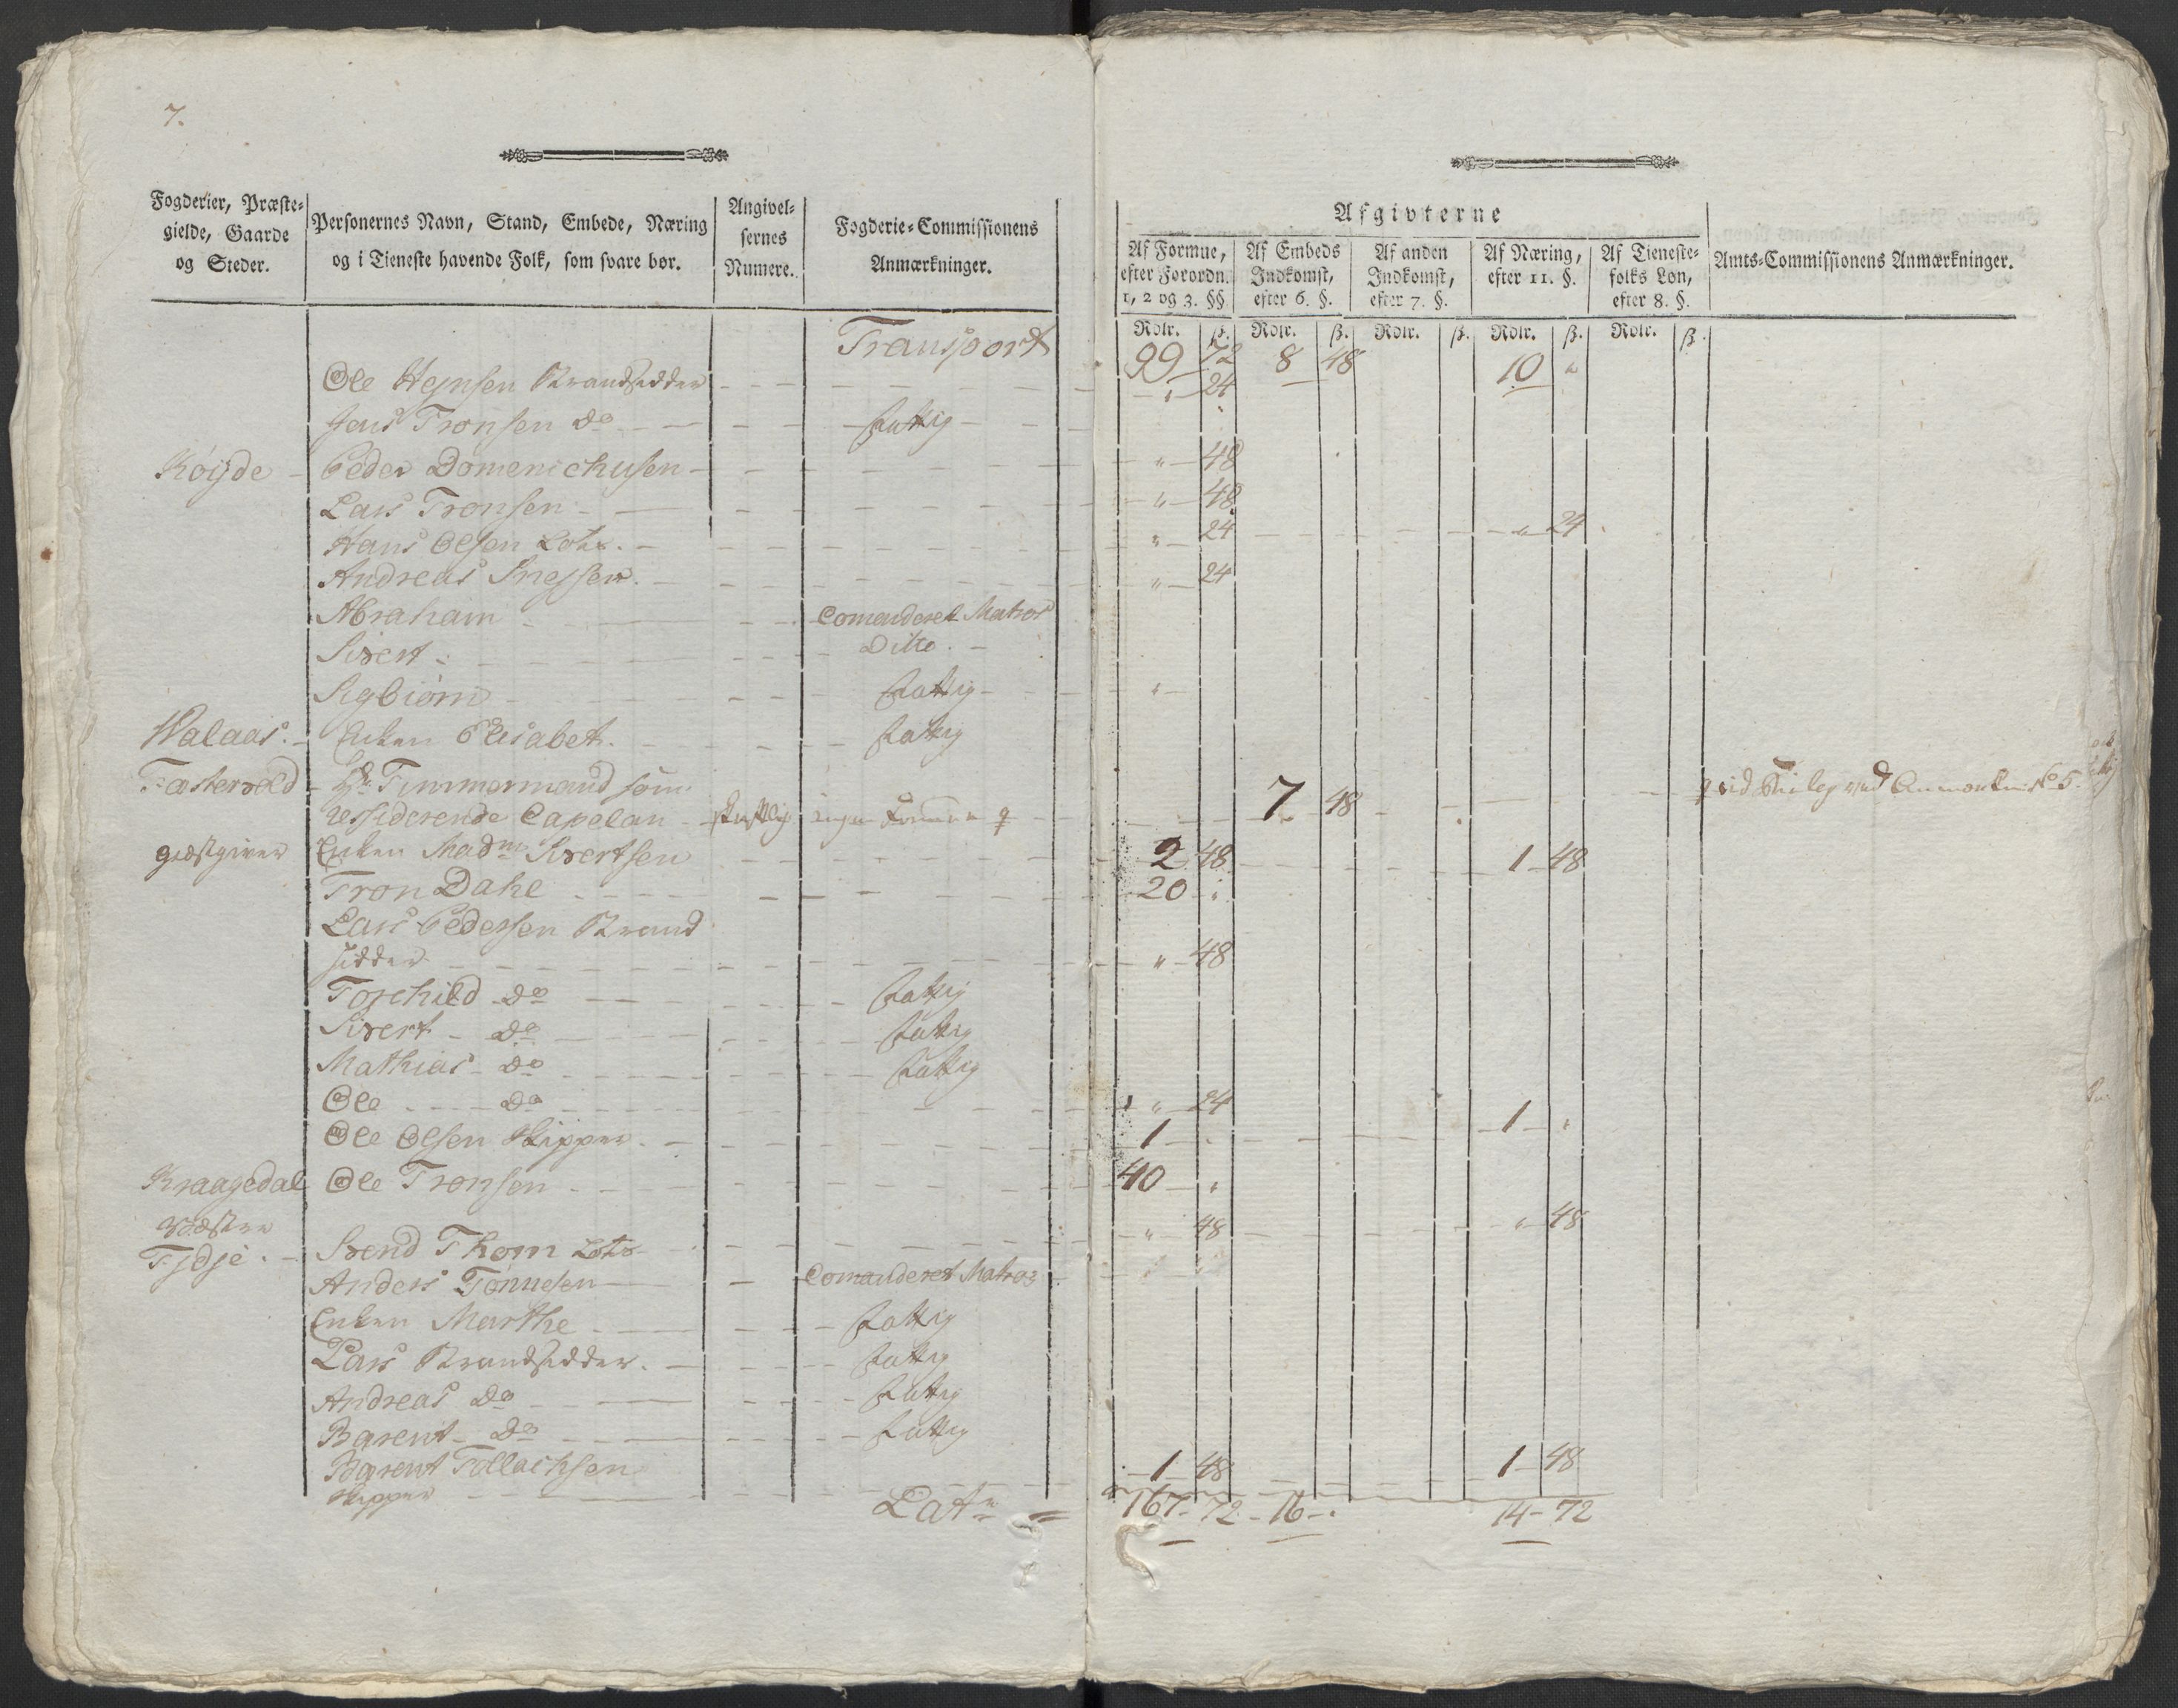 7.
Fogderier, Præste-
gielde, Gaarde
og Steder.
Personernes Navn, Stand, Embede, Næring
og i Tieneste havende Folk, som svare bør.
Angivel-
sernes
Numere.
Fogderie-Commissionens
Anmærkninger.
Afgivterne
Af Formue,
efter Forordn.
1, 2 og 3. §§.
Af Embeds
Indkomst,
efter 6. §.
Af anden
Indkomst,
efter 7. §.
Af Næring,
efter 11. §.
Af Tieneste-
folks Løn,
efter 8. §.
Amts-Commissionens Anmærkninger.
Rdlr. ß. Rdlr. ß. Rdlr. ß. Rdlr. ß. Rdlr. ß.
Transport 99 72 8 48 10 "
Ole Hejnsen Strandsidder " 24
Jens Tronsen do fattig
Röijde Peder Domenichusen " 48
Lars Tronsen " 48
Hans Olsen Lots. " 24 " 24
Andreas Snessen. " 24
Abraham Comanderet Matros
Sivert Ditto.
Sigbiörn fattig "
Walaas. Enken Elisabet. fattig
Fastervold Hr Timmermand som
ressiderende Capelan skriftlig ingen Formue 7 48
giæstgiver Enken Madme Sivertsen 2 48 1 48
Tron Dahl 20 "
Lars Pedersen Strand
sidder " 48
Torchild do fattig
Sivert do fattig
Mathias do fattig
Ole do " 24
Ole Olsen Skipper. 1 " 1 "
Kraagedal Ole Tronsen 40 "
Westre
Fjdje. Svend Thom Lots " 48 " 48
Anders Tönnesen Comanderet Matros
Enken Marthe fattig
Lars Strandsidder. fattig
Andreas do fattig
Barent do fattig
Barent Tollachsen
Skipper 1 48 1 48
Lat. = 167 - 72 - 16 - " 14 - 72